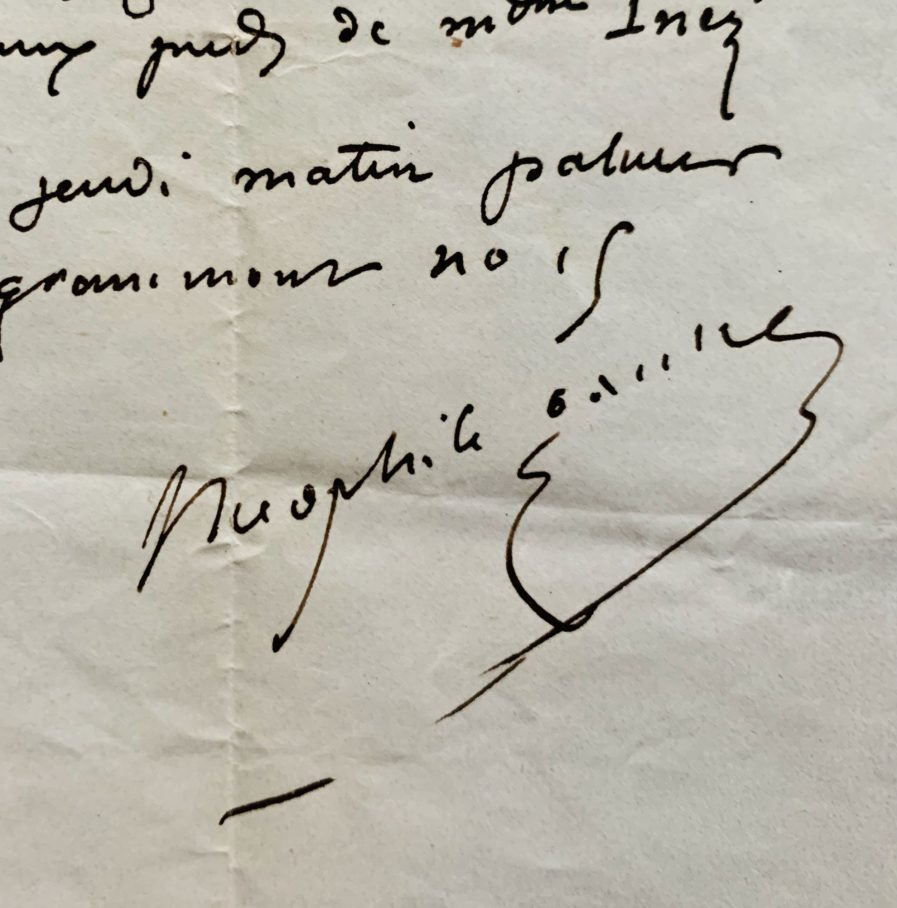 aux pieds de mdme Inez
jeudi matin
grammont no 15
theophile gautier